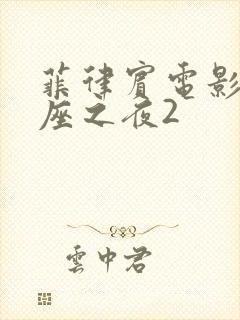 菲律宾電影
座之夜2
雲中君